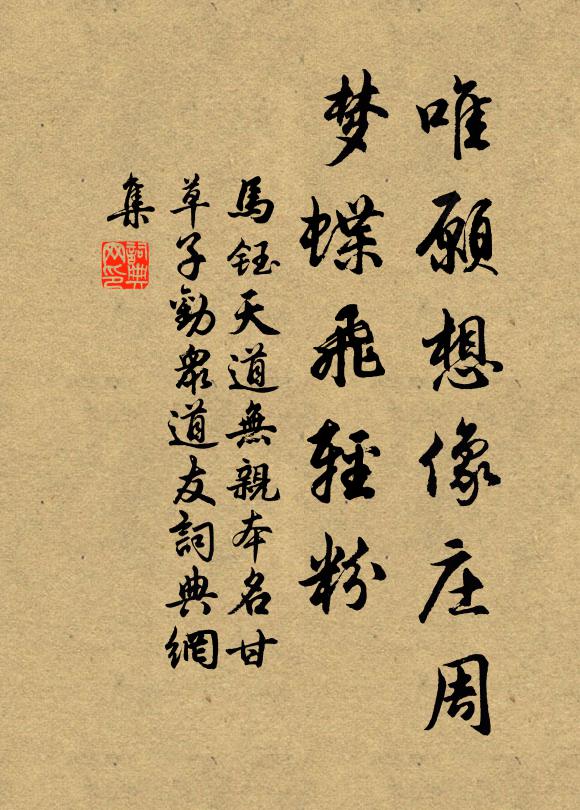 唯願想像庄周
梦蝶飛輕粉
馬鈺天道無親本名甘
草子勸衆道友詞典網
集
詞典
网印